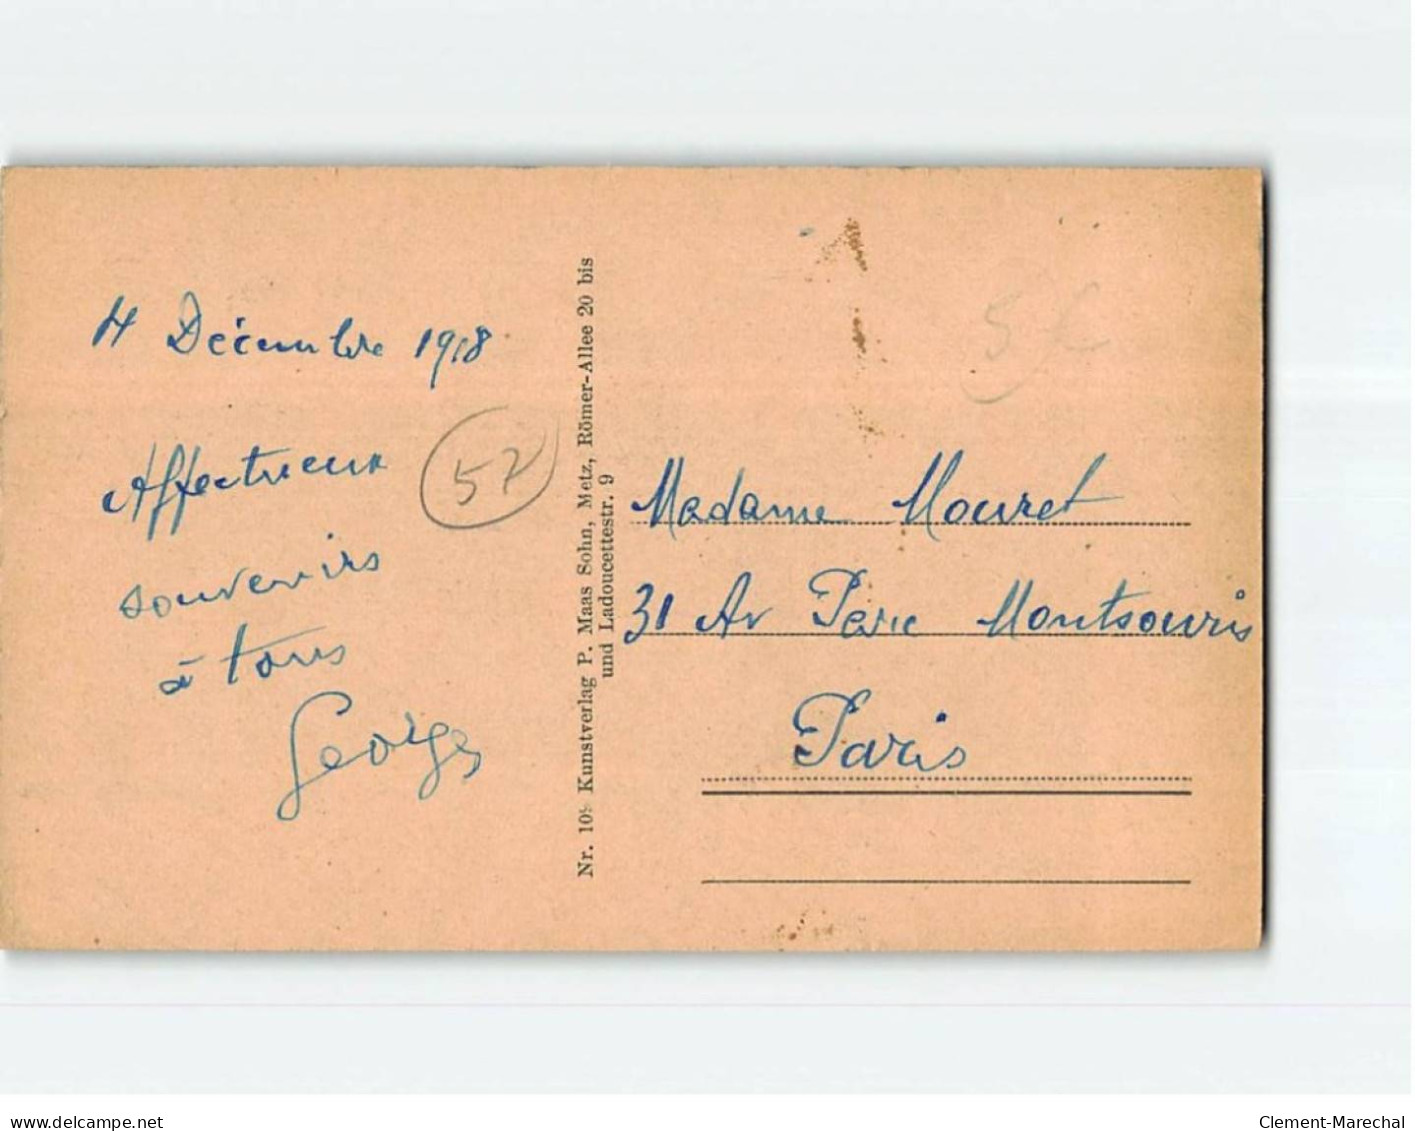 4 Décembre 1918
Affectueux
souvenirs
à tous
Georges
57
Nr. 109 Kunstverlag P. Maas Sohn, Metz, Römer-Allee 20 bis
und Ladoucettestr. 9
5€
Madame Mouret
31 Av Parc Montsouris
Paris
www.delcampe.net
Clement-Marechal